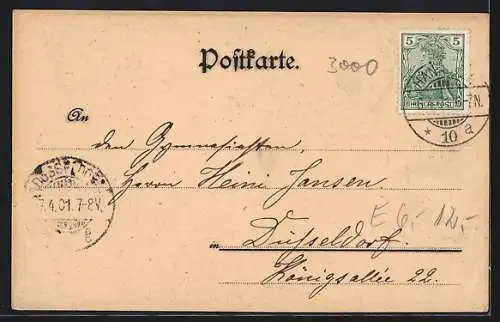 Postkarte.
3000
5 5
REICHSPOST
7N.
* 10 a
An
den Gymnasiasten,
Herrn Heini Jansen.
DÜSSELDORF
7.4.01.7-8V.
E 6,- 12,-
in Düsseldorf.
Königsallee 22.